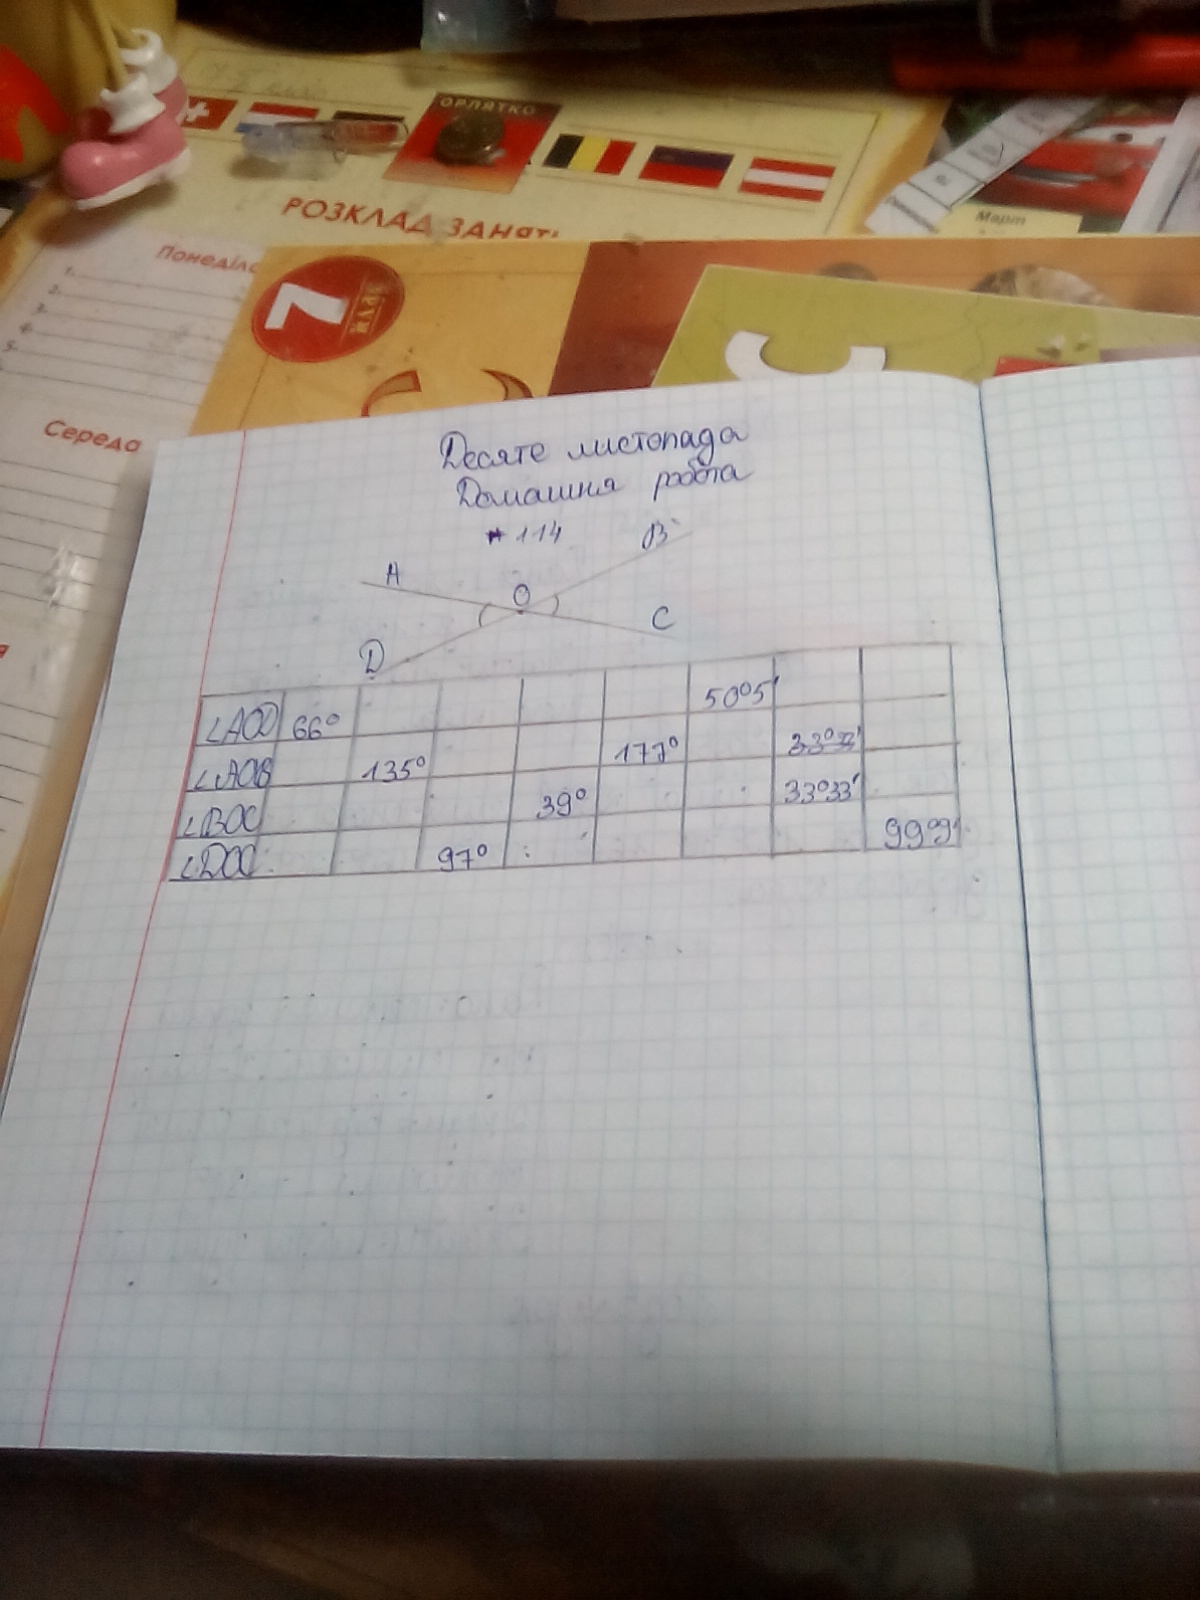 ОРЛЯТКО
РОЗКЛАД ЗАНЯТЬ
Март
Понеділо
1.
2.
3.
4.
5.
7
С
Середа
Десяте листопада
Домашня робота
114
А
В
О
С
D
∠AOD 66° 50°5'
∠AOB 135° 177° 33°33'
∠BOC 39° 33°33'
∠DOC 97° 99°9'